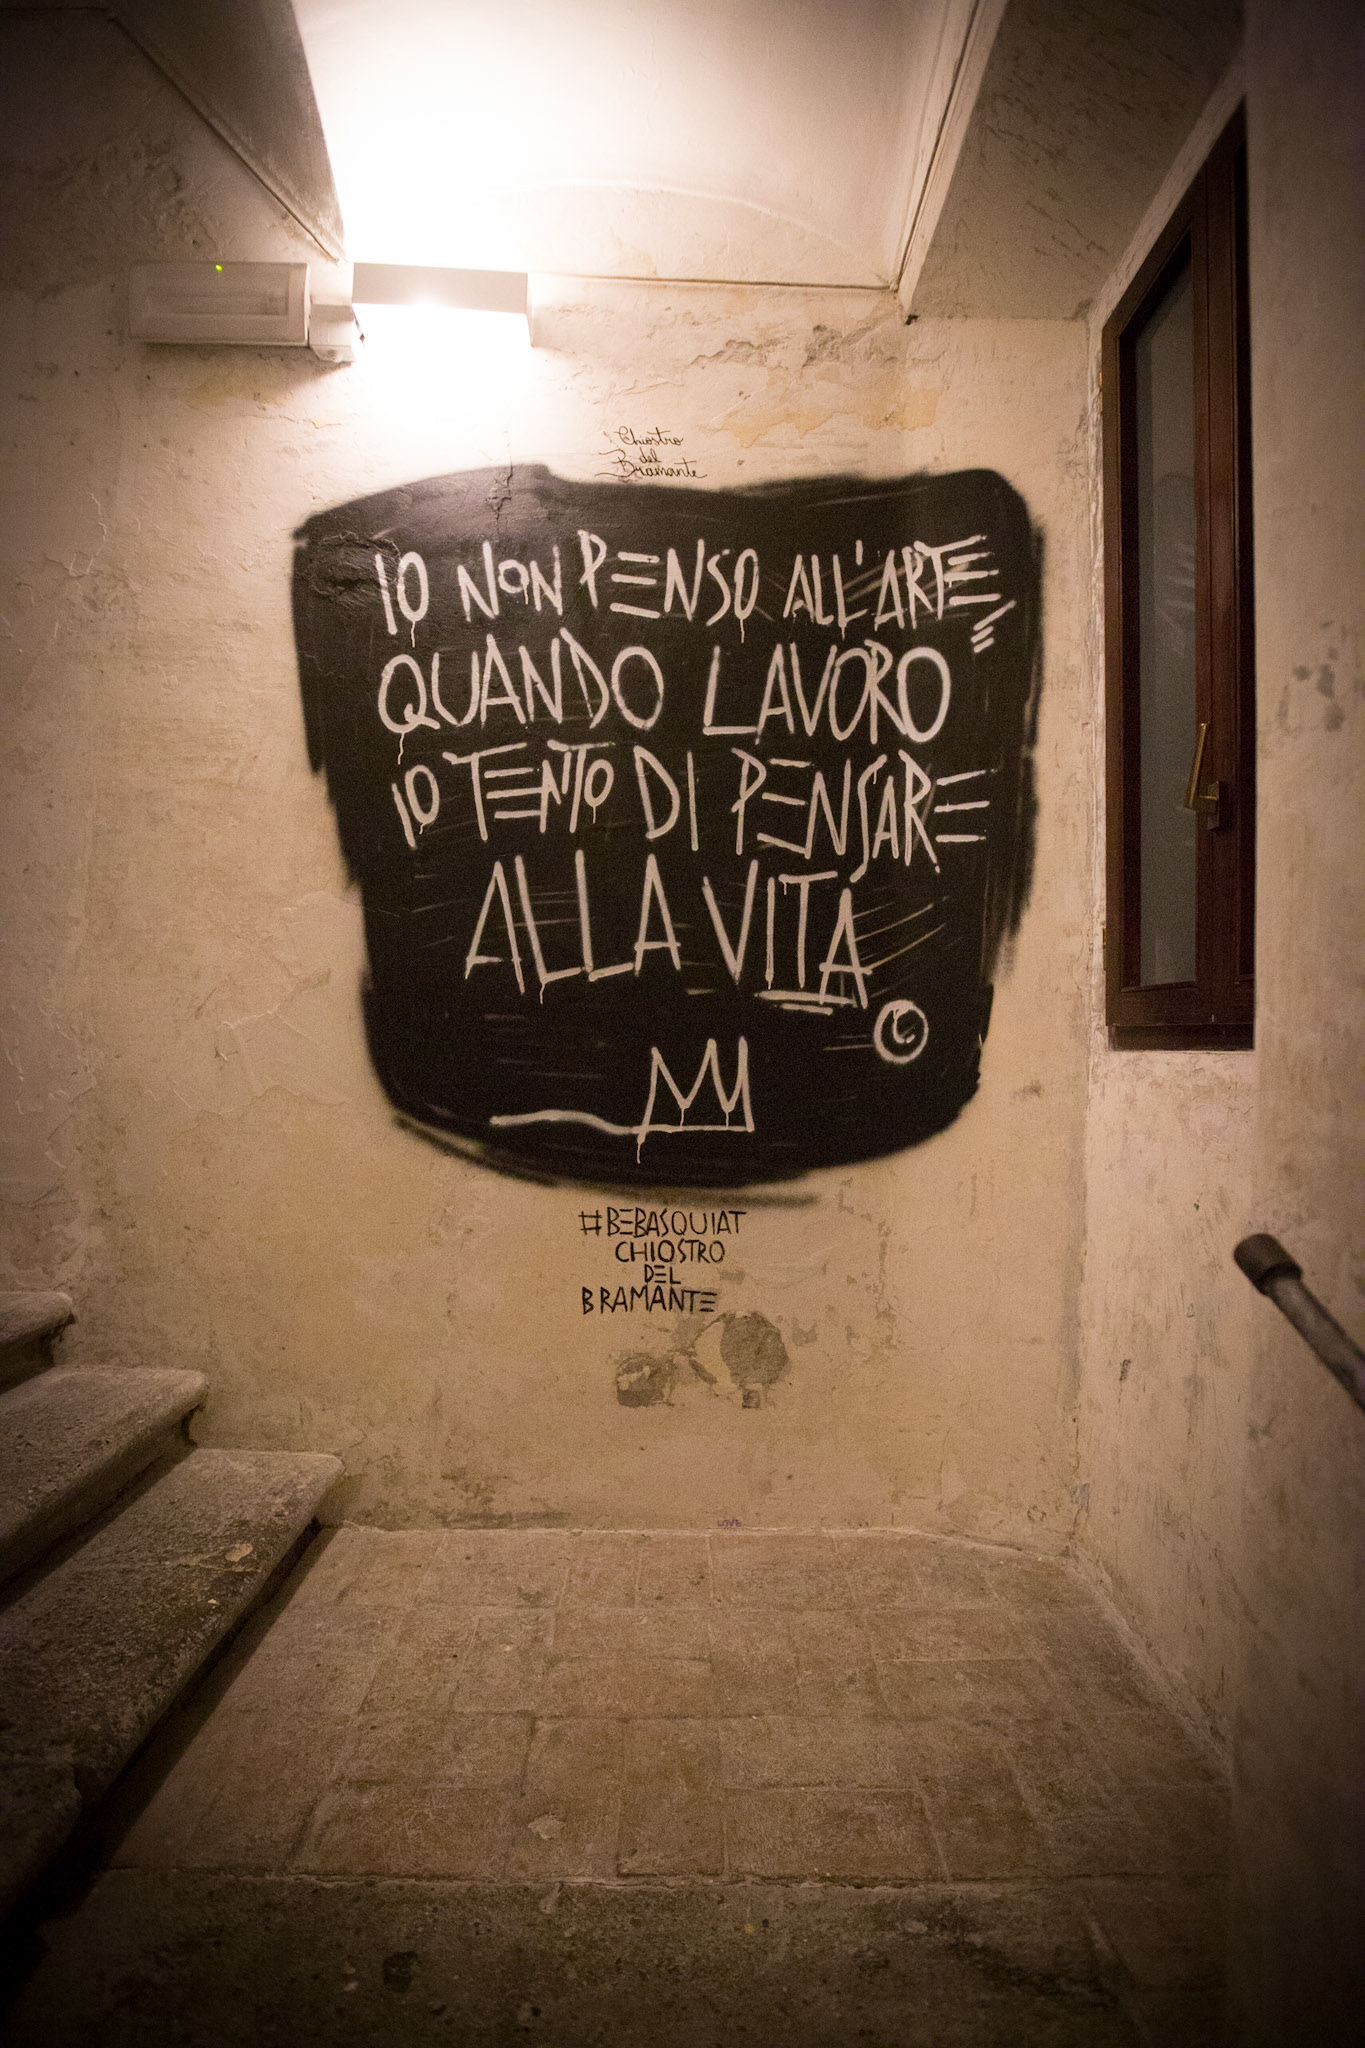 Chiostro
del
Bramante
IO NON PENSO ALL'ARTE,
QUANDO LAVORO
IO TENTO DI PENSARE
ALLA VITA
#BEBASQUIAT
CHIOSTRO
DEL
BRAMANTE
LOVE